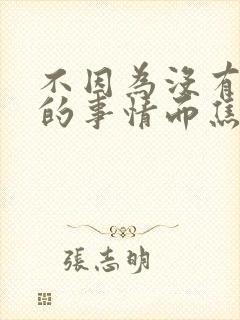 不因為沒有
的事情而焦
張志明